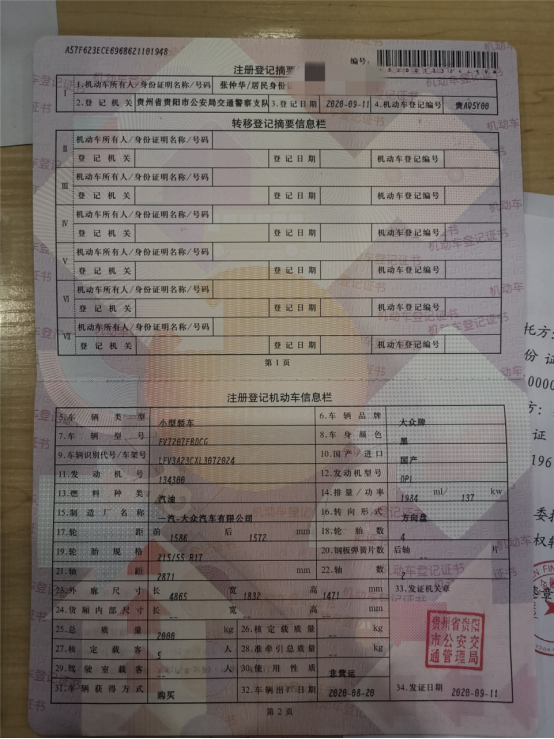 A57F623ECE6968621101948
编号:
注册登记摘要
I 1.机动车所有人/身份证明名称/号码 张仲华/居民身份证
2.登记机关 贵州省贵阳市公安局交通警察支队 3.登记日期 2020-09-11 4.机动车登记编号 贵A05Y00
转移登记摘要信息栏
II 机动车所有人/身份证明名称/号码
登记机关 登记日期 机动车登记编号
III 机动车所有人/身份证明名称/号码
登记机关 登记日期 机动车登记编号
IV 机动车所有人/身份证明名称/号码
登记机关 登记日期 机动车登记编号
V 机动车所有人/身份证明名称/号码
登记机关 登记日期 机动车登记编号
VI 机动车所有人/身份证明名称/号码
登记机关 登记日期 机动车登记编号
VII 机动车所有人/身份证明名称/号码
登记机关 登记日期 机动车登记编号
第1页
注册登记机动车信息栏
5.车辆类型 小型轿车 6.车辆品牌 大众牌
7.车辆型号 FV7207FBDCG 8.车身颜色 黑
9.车辆识别代号/车架号 LFV3A23CXL3072024 10.国产/进口 国产
11.发动机号 134300 12.发动机型号 DPL
13.燃料种类 汽油 14.排量/功率 1984 ml/ 137 kw
15.制造厂名称 一汽-大众汽车有限公司 16.转向形式 方向盘
17.轮距 前 1586 后 1572 mm 18.轮胎数 4
19.轮胎规格 215/55 R17 20.钢板弹簧片数 后轴 -- 片
21.轴距 2871 mm 22.轴数 2
23.外廓尺寸 长 4865 宽 1832 高 1471 mm 33.发证机关章
24.货厢内部尺寸 长 -- 宽 -- 高 -- mm
25.总质量 2000 kg 26.核定载质量 -- kg
27.核定载客 5 人 28.准牵引总质量 -- kg
29.驾驶室载客 -- 人 30.使用性质 非营运
31.车辆获得方式 购买 32.车辆出厂日期 2020-08-20 34.发证日期 2020-09-11
贵州省贵阳市公安交通管理局
第2页
机动车登记证书
托方:
份证
0000
方:
证
196
委托
权转
签章